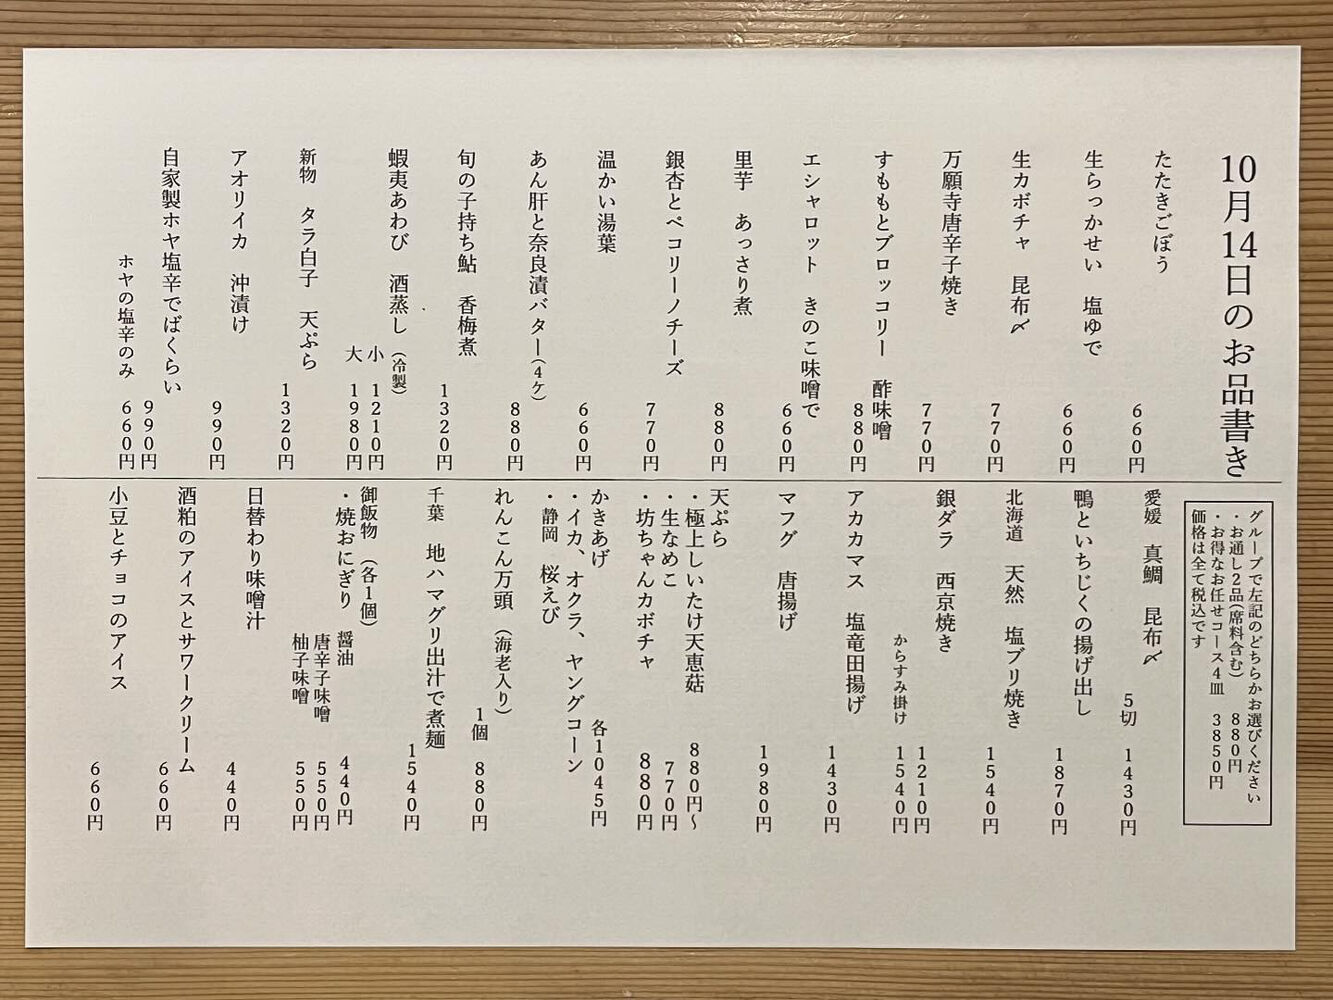 10月14日のお品書き
たたきごぼう
660円
生らっかせい 塩ゆで
660円
生カボチャ 昆布〆
770円
万願寺唐辛子焼き
770円
すももとブロッコリー 酢味噌
880円
エシャロット きのこ味噌で
660円
里芋 あっさり煮
880円
銀杏とペコリーノチーズ
770円
温かい湯葉
660円
あん肝と奈良漬バター(4ケ)
880円
旬の子持ち鮎 香梅煮
1320円
蝦夷あわび 酒蒸し(冷製)
小 1210円
大 1980円
新物 タラ白子 天ぷら
1320円
アオリイカ 沖漬け
990円
自家製ホヤ塩辛でばくらい
990円
ホヤの塩辛のみ 660円
グループで左記のどちらかお選びください
・お通し2品(席料含む) 880円
・お得なお任せコース4皿 3850円
価格は全て税込です
愛媛 真鯛 昆布〆
5切 1430円
鴨といちじくの揚げ出し
1870円
北海道 天然 塩ブリ焼き
1540円
銀ダラ 西京焼き
1210円
からすみ掛け 1540円
アカカマス 塩竜田揚げ
1430円
マフグ 唐揚げ
1980円
天ぷら
・極上しいたけ天恵菇 880円~
・生なめこ 770円
・坊ちゃんカボチャ 880円
かきあげ 各1045円
・イカ、オクラ、ヤングコーン
・静岡 桜えび
れんこん万頭(海老入り)
1個 880円
千葉 地ハマグリ出汁で煮麺
1540円
御飯物(各1個)
・焼おにぎり 醤油 440円
唐辛子味噌 550円
柚子味噌 550円
日替わり味噌汁
440円
酒粕のアイスとサワークリーム
660円
小豆とチョコのアイス
660円